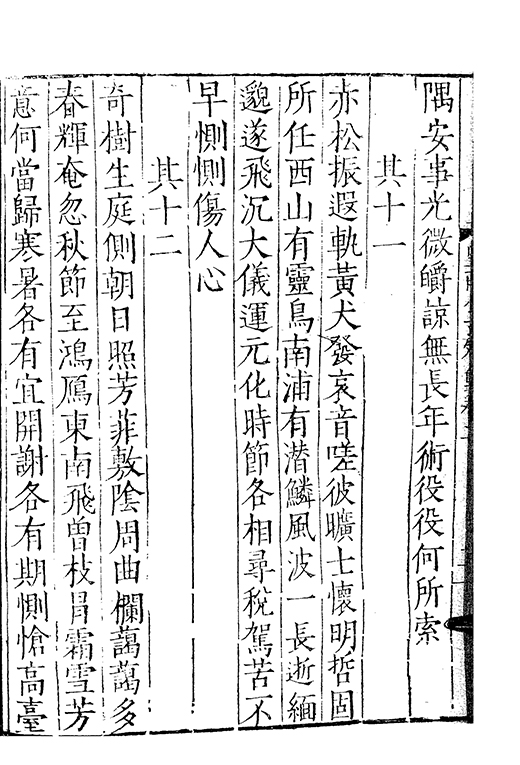 隅安事光微皭諒無長年術役役何所索
其十一
赤松振遐軌黃犬發哀音嗟彼曠士懷明哲固
所任西山有靈鳥南浦有潛鱗風波一長逝緬
邈遂飛沉大儀運元化時節各相尋稅駕苦不
早惻惻傷人心
其十二
奇樹生庭側朝日照芳菲敷陰周曲欄藹藹多
春輝奄忽秋節至鴻鴈東南飛曾枝冐霜雪芳
意何當歸寒暑各有宜開謝各有期惻愴高臺